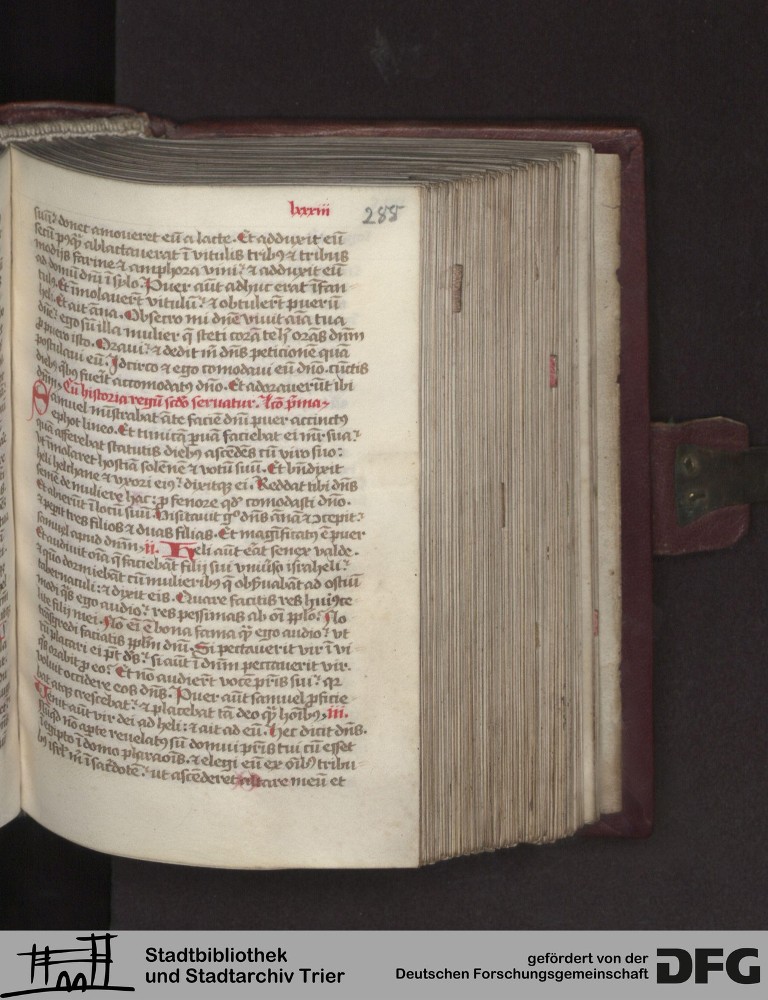 lxxxiii 288
suū: donec amoueret eū a lacte. Et adduxit eū
secū pꝰqꝫ ablactauerat ī vitulis tribꝰ ⁊ tribus
modijs farine ⁊ amphora vini: ⁊ adduxit eū
ad domū dn̄i ī sylo. Puer aūt adhuc erat īfan
tulꝰ. Et īmolauert̄ vitulū: ⁊ obtulert̄ puerū
heli. Et ait āna. Obsecro mi dn̄e viuit aīa tua
dn̄e: ego sū illa mulier q̄ steti corā te hic orās dn̄m
ꝓ puero isto. Oraui: ⁊ dedit m̄ dn̄s peticionē quā
postulaui eū. Jdcirco ⁊ ego comodaui eū dn̄o. cūctis
diebꝰ qͥbꝰ fuerit accomodatꝰ dn̄o. Et adorauerūt ibi
dn̄m. Cū historia regū scd̄o seruatur. Lc̄o p̄ma.
Samuel mīstrabat āte faciē dn̄i puer accinctꝰ
ephot lineo. Et tunicā ꝑuā faciebat ei mr̄ sua:
quā afferebat statutis diebꝰ ascēdēs cū viro suo:
vt īmolaret hostiā solēnē ⁊ votū suū. Et bn̄dixit
heli helchane ⁊ vxori eiꝰ: dixitqꝫ ei. Reddat tibi dn̄s
semē de muliere hac: ꝓ fenore qd̓ comodasti dn̄o.
Et abierūt ī locū suū. Visitauit gͦ dn̄s ānā ⁊ ↄcepit:
⁊ peꝑit tres filios ⁊ duas filias. Et magīficatꝰ ē puer
samuel apud dn̄m. ii. Heli aūt erat senex valde.
Et audiuit oīa q̄ faciebāt filij sui vniuso israheli:
⁊ qͦuo dormiebāt cū mulieribꝰ q̄ obsͥuabāt ad ostiū
tabernaculi: ⁊ dixit eis. Quare facitis res huiꝰce
modi q̄s ego audio: res pessimas ab oī pplo: No
lite filij mei. No ē eī bona fama q̄ ego audio: vt
tn̄sgredi faciatis pplm̄ dn̄i. Si peccauerit vir ī vi
rū placari ei pt̄ ds̄: si aūt ī dn̄m peccauerit vir.
qͥs orabit ꝓ eo: Et nō audiert̄ vocē pr̄is sui: qꝛ
voluit occidere eos dn̄s. Puer aūt samuel ꝓficie
bat atqꝫ crescebat: ⁊ placebat tā deo qꝫ hoībꝰ. iii.
Venit aūt vir dei ad heli: ⁊ ait ad eū. Hec dicit dn̄s.
Nūqd̓ nō apte reuelatꝰ sū domui pr̄is tui cū esset
ī egipto ī domo pharaoīs. ⁊ elegi eū ex oībꝰ tribu
bꝰ isrl̄ m̄ ī sac̓dotē: vt ascēderet altare meū et
Stadtbibliothek
und Stadtarchiv Trier
gefördert von der
Deutschen Forschungsgemeinschaft
DFG